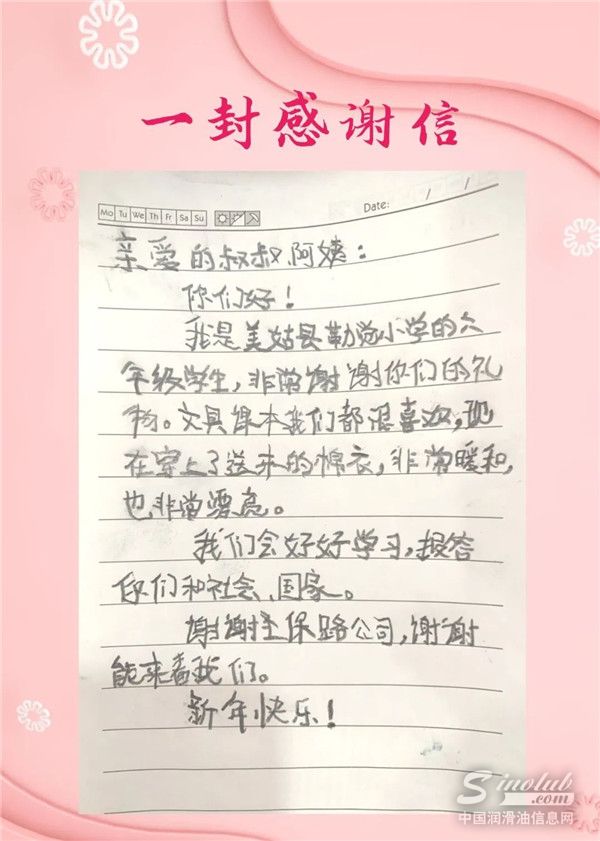 一封感谢信
Mo Tu We Th Fr Sa Su
Date: / /
亲爱的叔叔阿姨：
你们好！
我是美姑县勒觉小学的六
年级学生，非常谢谢你们的礼
物。文具课本我们都很喜欢，现
在穿上了送来的棉衣，非常暖和，
也非常漂亮。
我们会好好学习，报答
你们和社会、国家。
谢谢主保路公司，谢谢
能来看我们。
新年快乐！
Sinolub.com
中国润滑油信息网